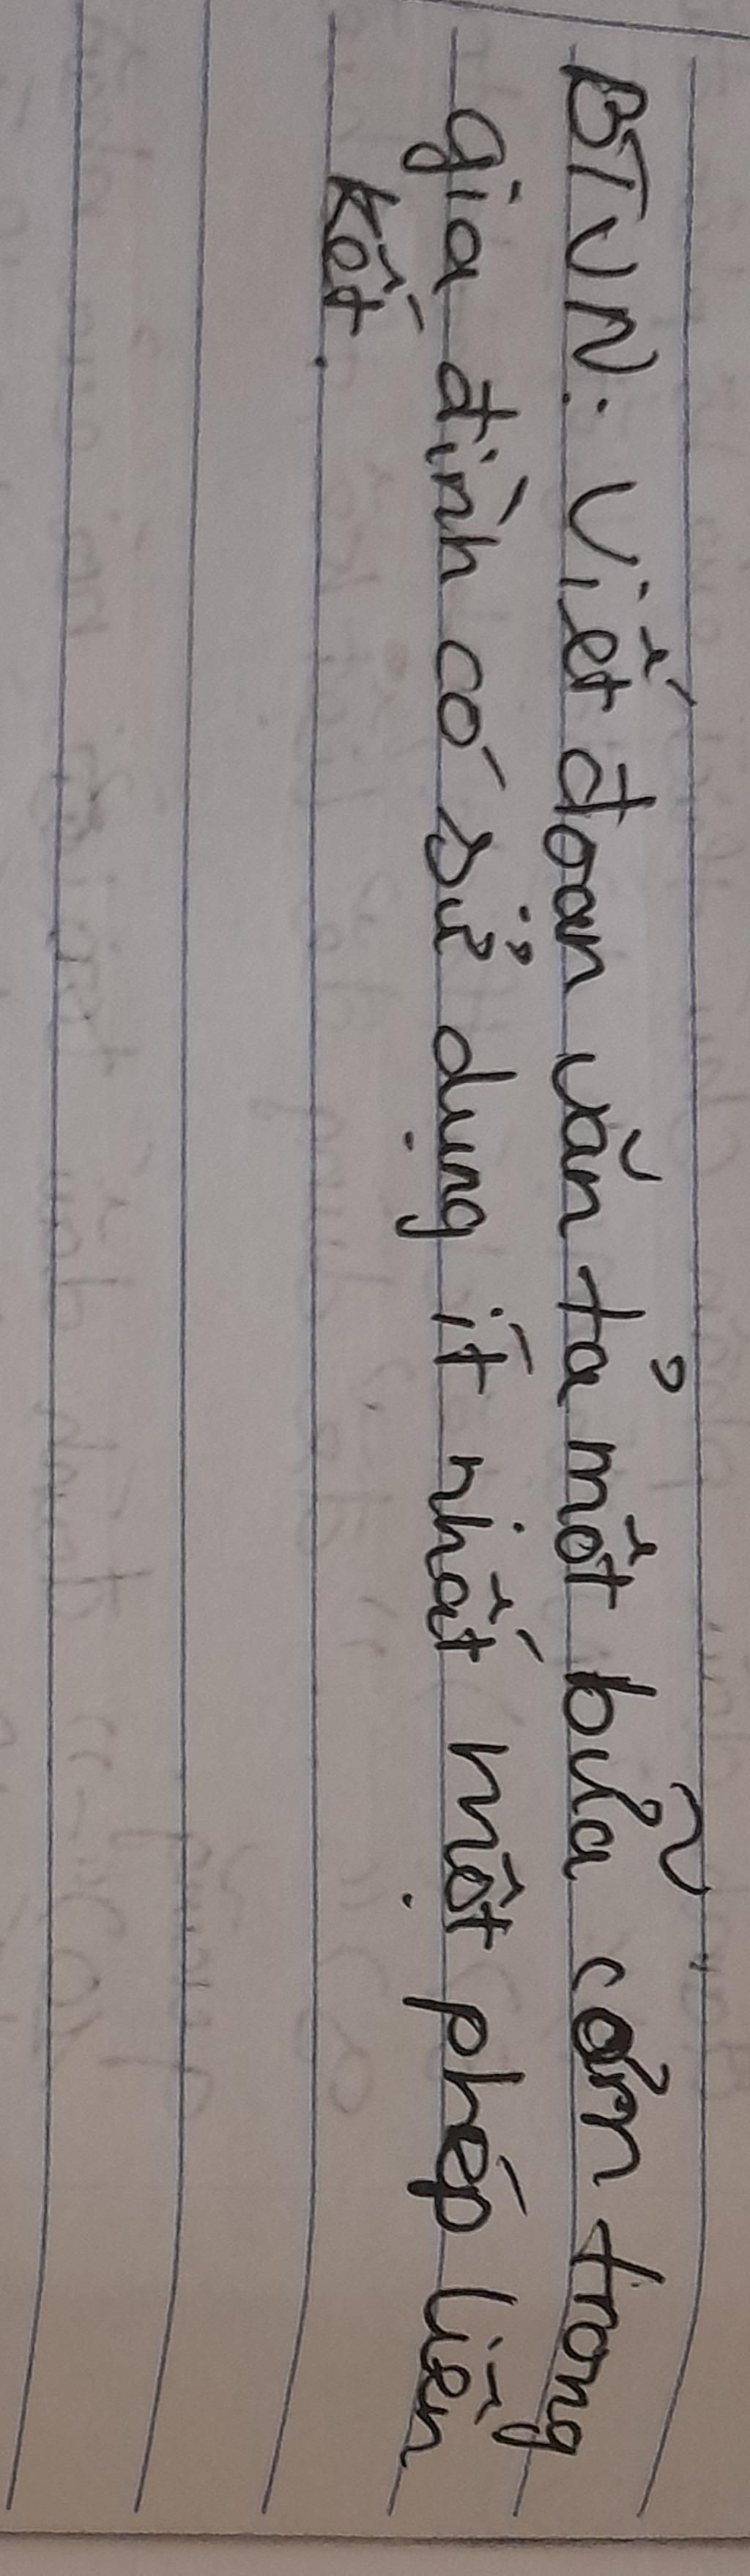 BTVN: Viết đoan văn tả một bữa cơm trong
gia đình có sử dụng ít nhất một phép liên
kết.